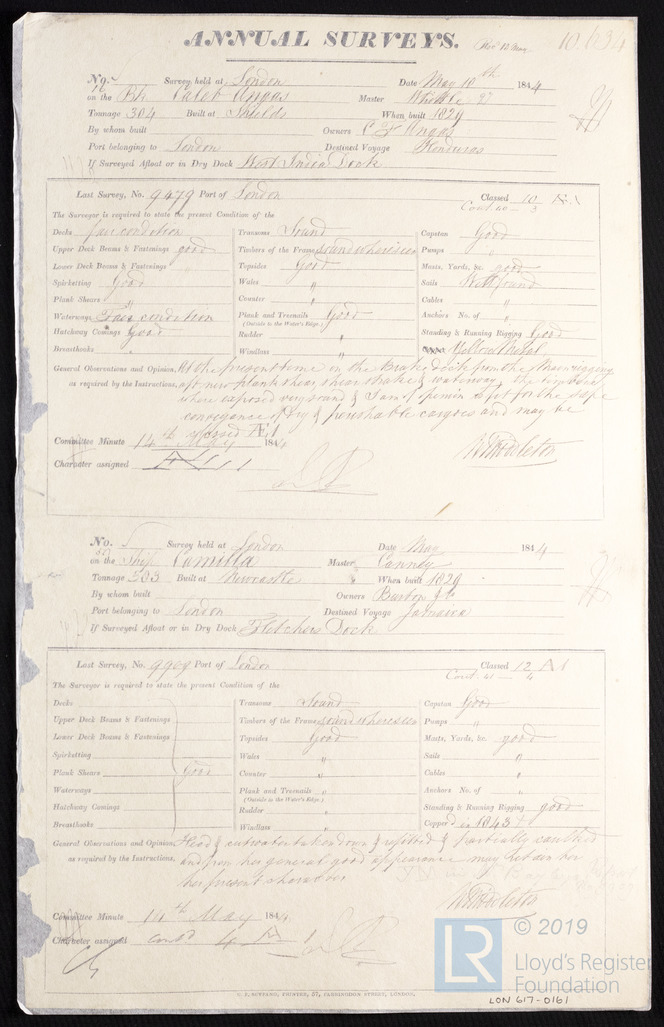 ANNUAL SURVEYS. 10,634
No. Survey held at London Date May 10th 1844
on the Bk. Caleb Angas Master
Tonnage 304 Built at Shields When built 1829
By whom built Owners Angas
Port belonging to London Destined Voyage Honduras
If Surveyed Afloat or in Dry Dock West India Dock
Last Survey, No. 9479 Port of London Classed 10 A1
The Surveyor is required to state the present Condition of the
Decks fair condition Transoms Sound Capstan Good
Upper Deck Beams & Fastenings good Timbers of the Frame sound where seen Pumps "
Lower Deck Beams & Fastenings Topsides Good Masts, Yards, &c. good
Spirketting Good Wales " Sails Well found
Plank Shears " Counter " Cables "
Waterways Fair condition Plank and Treenails Good Anchors No. of "
(Outside to the Water's Edge.)
Hatchway Comings Good Rudder " Standing & Running Rigging Good
Breasthooks Windlass " Yellow Metal
General Observations and Opinion, At the present time in the deck from the Main rigging
as required by the Instructions, aft new plank shear, sheer strake & waterway, the
where exposed very sound & I am of opinion is fit for the safe
conveyance of Dry & perishable cargoes and may be
classed Æ1
Committee Minute 14th May 1844 Middleton
Character assigned
No. Survey held at London Date May 1844
on the Ship Camilla Master Canndy
Tonnage Built at Newcastle When built 1829
By whom built Owners Burton & Co
Port belonging to London Destined Voyage Jamaica
If Surveyed Afloat or in Dry Dock Fletchers Dock
Last Survey, No. Port of London Classed 12 A1
The Surveyor is required to state the present Condition of the
Decks Transoms Sound Capstan Good
Upper Deck Beams & Fastenings Timbers of the Frame sound where seen Pumps "
Lower Deck Beams & Fastenings Topsides Good Masts, Yards, &c. good
Spirketting Wales " Sails "
Plank Shears Good Counter " Cables "
Waterways Plank and Treenails " Anchors No. of "
(Outside to the Water's Edge.)
Hatchway Comings Rudder " Standing & Running Rigging good
Breasthooks Windlass " Copperd in 1843
General Observations and Opinion Head & cutwater taken down & refitted & partially caulked
as required by the Instructions, and from her general good appearance may retain her
her present character
Middleton
Committee Minute 14th May 1844
Character assigned contd 4 A 1
C. F. SEYFANG, PRINTER, 57, FARRINGDON STREET, LONDON.
LR © 2019
Lloyd's Register
Foundation
LON 617-0161